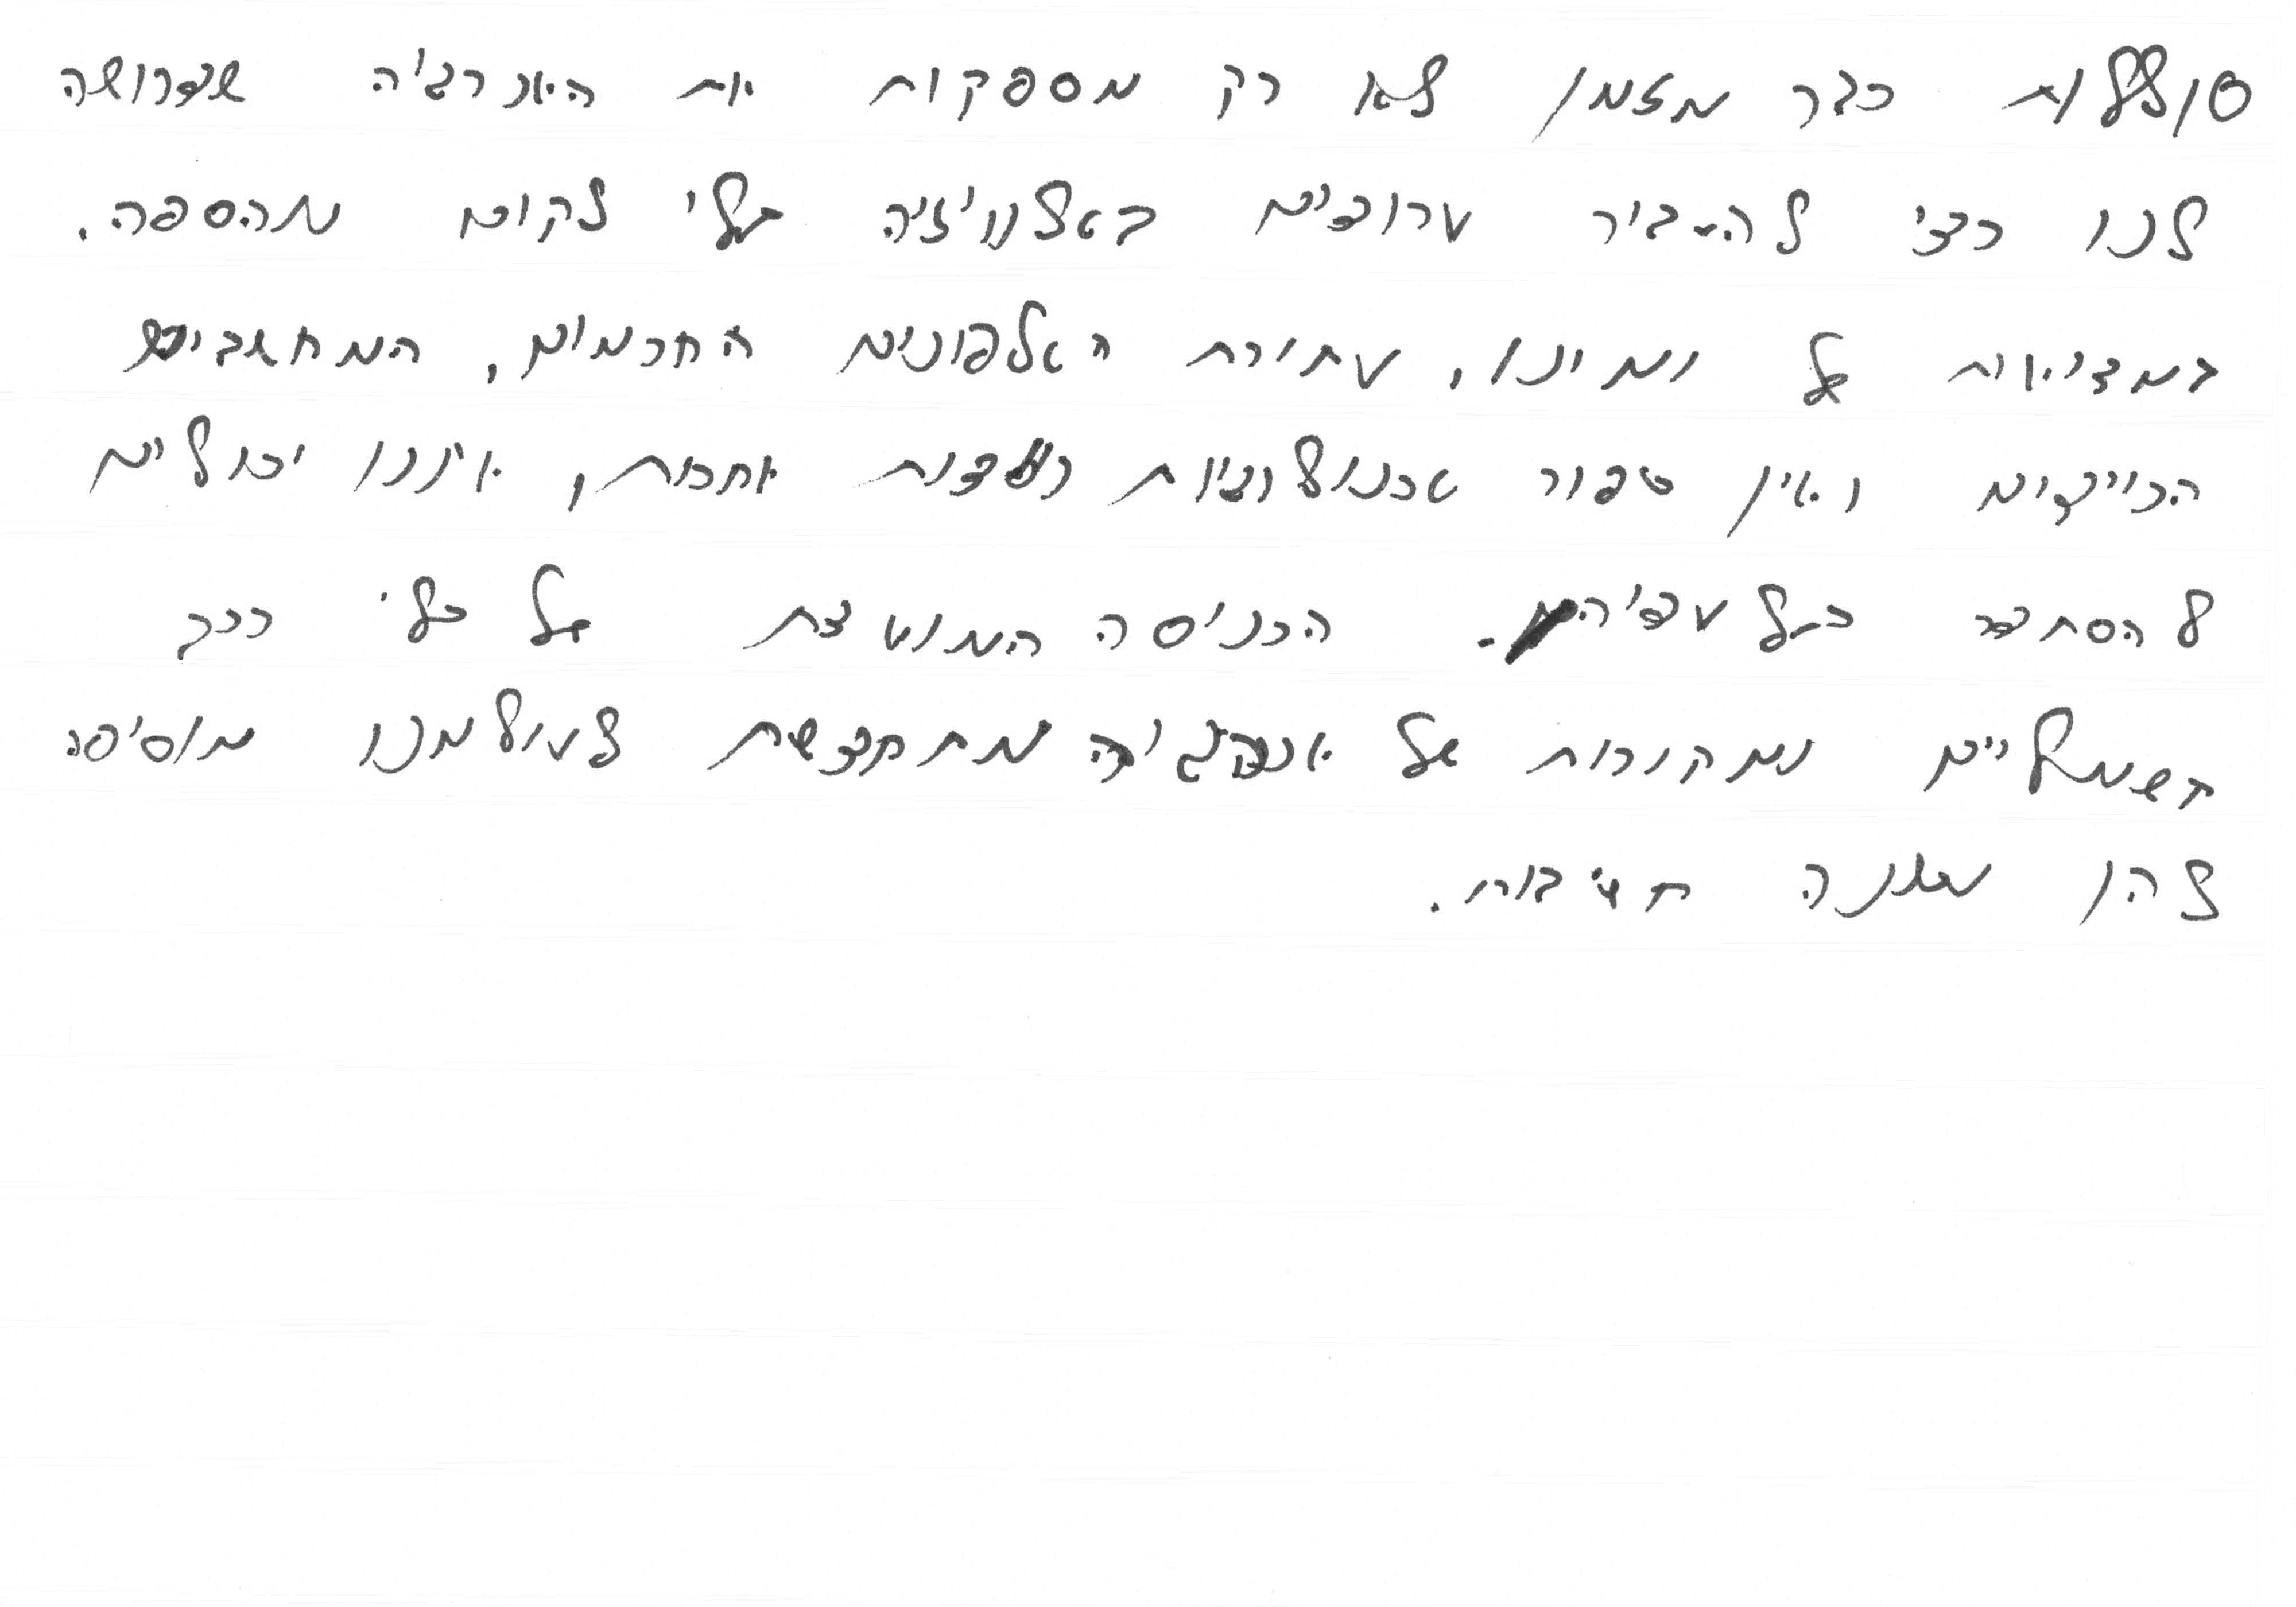 סוללות כבר מזמן לא רק מספקות את האנרגיה שדרושה
לנו כדי להעביר ערוצים בטלוויזיה בלי לקום מהספה.
במציאות של ימינו, עתירת הטלפונים החכמים, המחשבים
הניידים ואין ספור טכנולוגיות ניידות אחרות, איננו יכולים
להסתדר בלעדיהן. הכניסה המואצת של כלי רכב
חשמליים ומקורות של אנרגיה מתחדשת לעולמנו מוסיפה
להן משנה חשיבות.